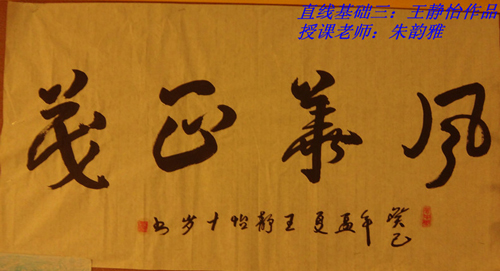 直线基础三：王静怡作品
授课老师：朱韵雅
风华正茂
癸巳年孟夏王静怡十岁书